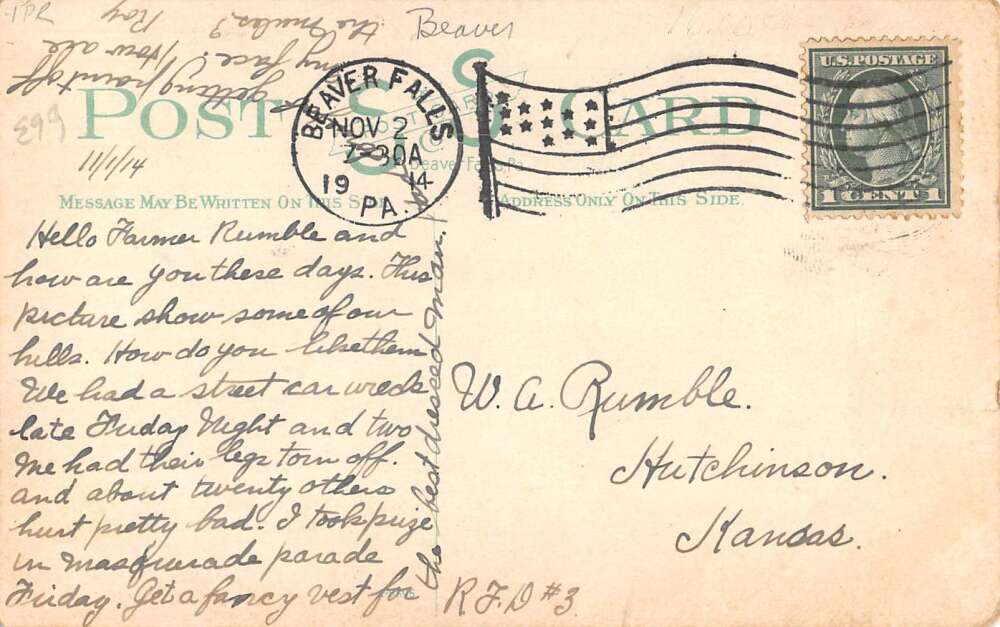 Beaver
POST CARD
BEAVER FALLS
NOV 2
7-30A
19 14
PA.
U.S. POSTAGE
1 CENT 1
11/1/14
MESSAGE MAY BE WRITTEN ON THIS SIDE
ADDRESS ONLY ON THIS SIDE.
Hello Farmer Rumble and
how are you these days. This
picture show some of our
hills. How do you like them
We had a street car wreck
late Friday Night and two
me had their legs torn off.
and about twenty others
hurt pretty bad. I took prize
in masquerade parade
Friday. Get a fancy vest for
the best dressed man.
getting paint off
my face! How are
the mules?
Roy
W. A. Rumble.
Hutchinson.
Kansas.
R.F.D #3